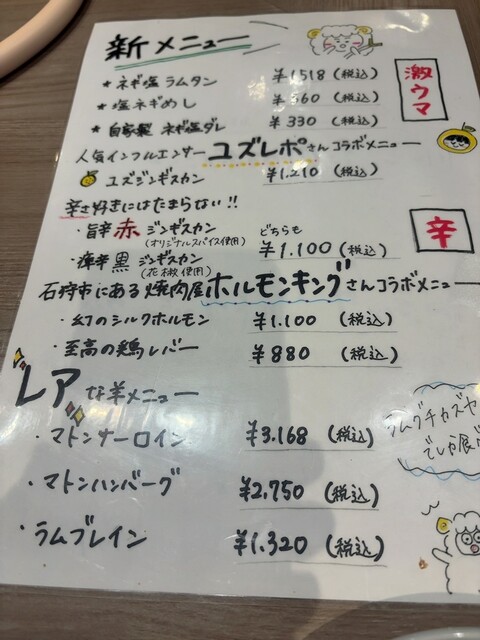 新メニュー
激ウマ
★ ネギ塩ラムタン ¥1518 (税込)
★ 塩ネギめし ¥560 (税込)
★ 自家製 ネギ塩ダレ ¥330 (税込)
人気インフルエンサー ユズレポさんコラボメニュー
ユズジンギスカン ¥1,210 (税込)
辛さ好きにはたまらない!!
辛
・旨辛 赤 ジンギスカン どちらも
(オリジナルスパイス使用) ¥1.100 (税込)
・痺辛 黒 ジンギスカン
(花椒使用)
石狩市にある焼肉屋ホルモンキングさんコラボメニュー
・幻のシルクホルモン ¥1.100 (税込)
・至高の鶏レバー ¥880 (税込)
レアな羊メニュー
・マトンサーロイン ¥3.168 (税込)
・マトンハンバーグ ¥2,750 (税込)
・ラムブレイン ¥1.320 (税込)